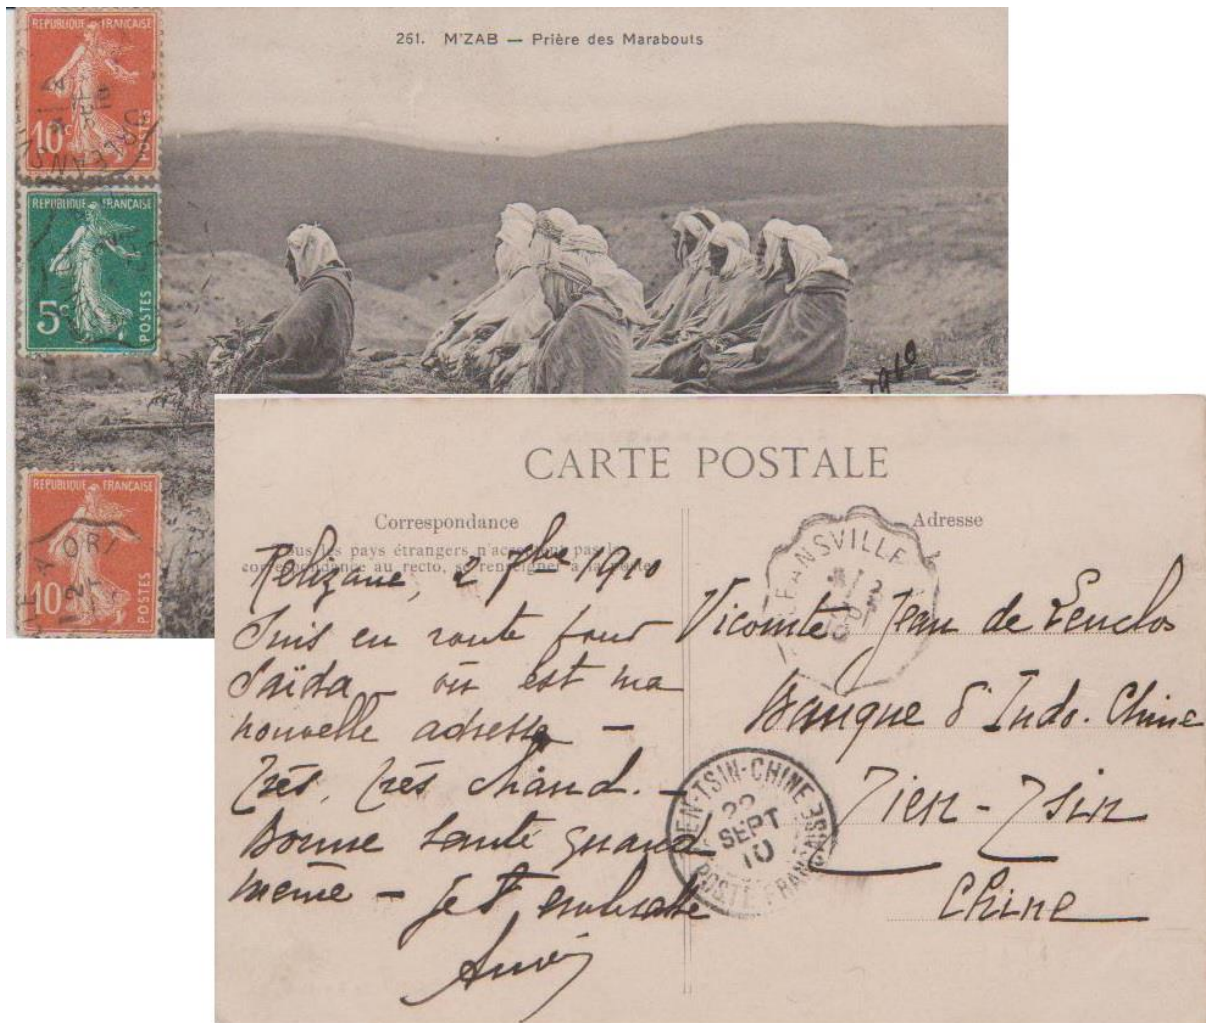 REPUBLIQUE FRANÇAISE
10c
POSTES
ORLEANS
261. M'ZAB — Prière des Marabouts
REPUBLIQUE FRANÇAISE
5c
POSTES
1910
REPUBLIQUE FRANÇAISE
10
POSTES
ORL
CARTE POSTALE
Correspondance
Adresse
Tous les pays étrangers n'acceptent pas la
correspondance au recto, se renseigner à la poste
Relizane, 2 7bre 1910
Suis en route pour
Saïda où est ma
nouvelle adresse —
Très, très chaud. —
Bonne santé quand
même — Je t'embrasse
EANSVILLE
Vicomte Jean de Lenclos
Banque d'Indo. Chine
Tien-Tsin
Chine
IEN-TSIN-CHINE
22
SEPT
10
POSTE FRANÇAISE